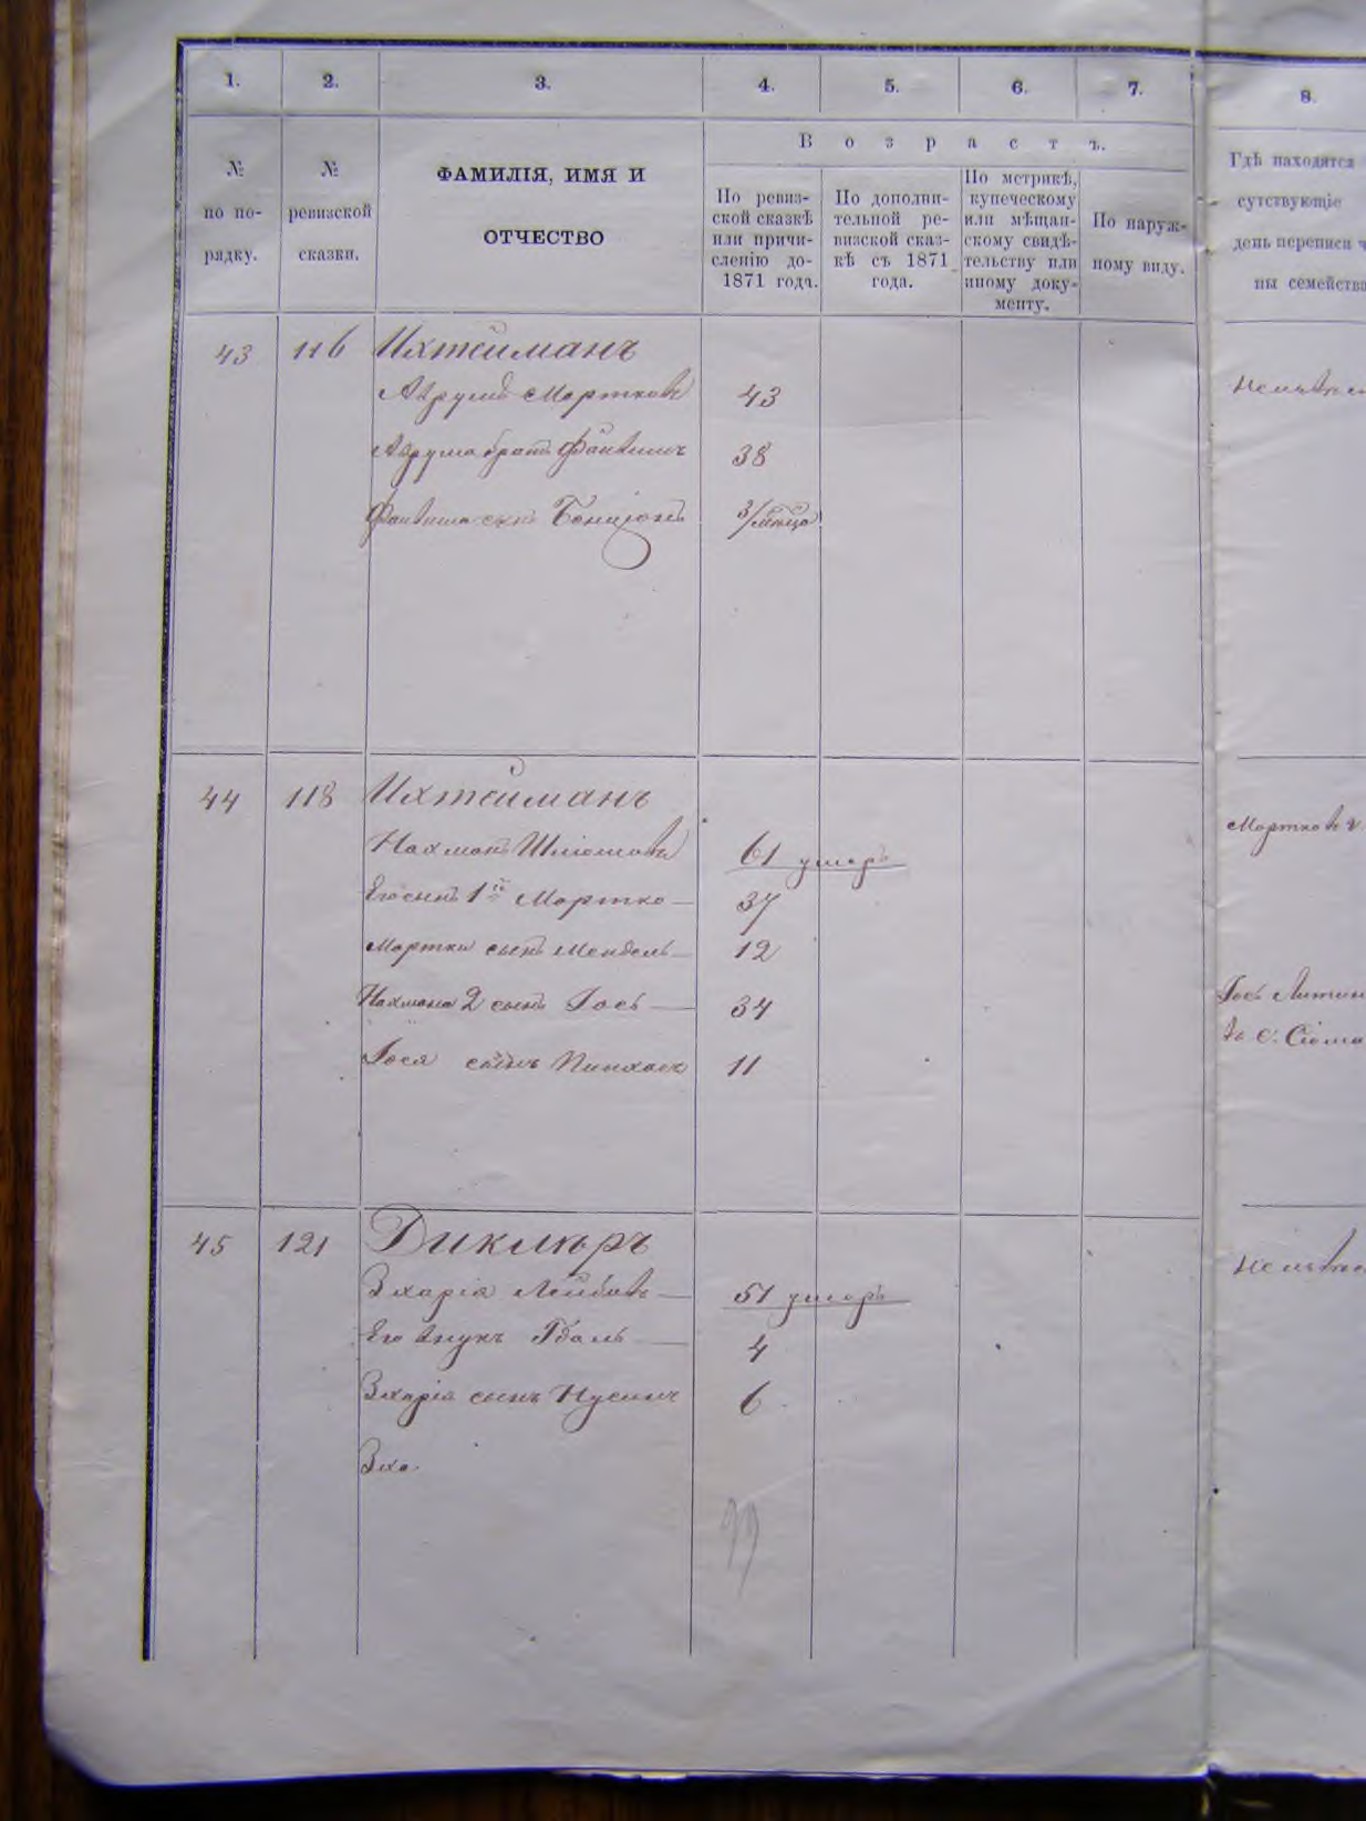 1. 2. 3. 4. 5. 6. 7. 8.
В о з р а с т ъ.
№
по по-
рядку.
№
ревизской
сказки.
ФАМИЛІЯ, ИМЯ И
ОТЧЕСТВО
По ревиз-
ской сказкѣ
или причи-
сленію до-
1871 года.
По дополни-
тельной ре-
визской сказ-
кѣ съ 1871
года.
По метрикѣ,
купеческому
или мѣщан-
скому свидѣ-
тельству или
иному доку-
менту.
По наруж-
ному виду.
Гдѣ находятся
сутствующіе
день переписи ч
ны семейства
43 116 Ихтейманъ
Аврумъ Мортковъ 43
Аврума братъ Файвишъ 38
Файвиша сынъ Бенціонъ 3/мѣсяца
44 118 Ихтейманъ
Мортко в г.
Нахманъ Шліомовъ 61 умеръ
Его сынъ 1й Мортко 37
Мортки сынъ Мендель 12
Нахмана 2 сынъ Іось 34
Іось
Іося сынъ Пинхасъ 11
в с.
45 121 Диклеръ
Зхарія Лейбовъ 51 умеръ
Его внукъ Гдаль 4
Зхарія сынъ Нусинъ 6
Зха